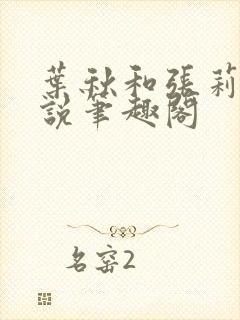 葉秋和張莉
說筆趣閣
名窑2